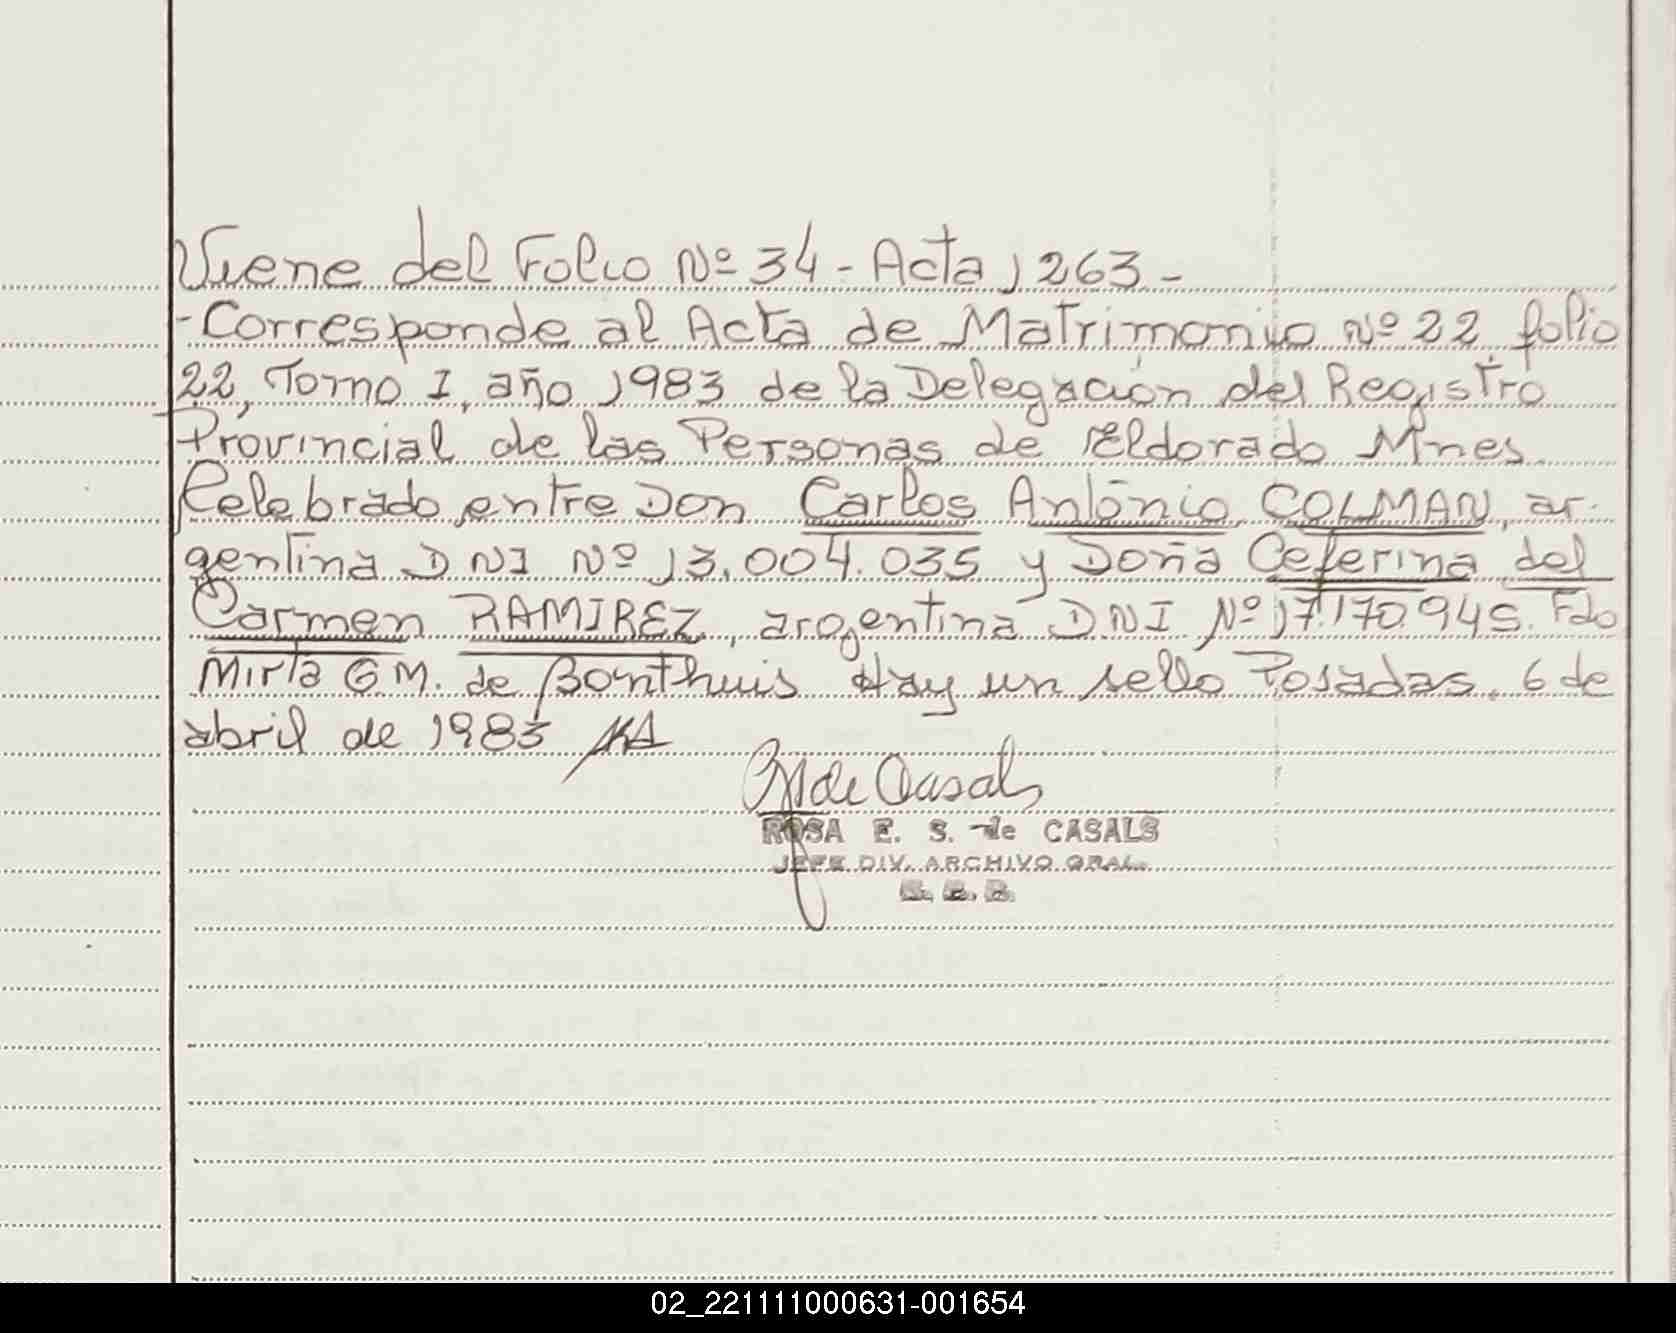 Viene del Folio Nº 34 - Acta 1263 -
- Corresponde al Acta de Matrimonio Nº 22 folio
22, Tomo I, año 1983 de la Delegación del Registro
Provincial de las Personas de Eldorado Mnes.
Celebrado entre Don Carlos Antonio COLMAN, ar-
gentina DNI Nº 13.004.035 y Doña Ceferina del
Carmen RAMIREZ, argentina DNI Nº 17.170.945. Fdo
Mirta G M. de Bonthuis Hay un sello Posadas, 6 de
abril de 1983
de Casals
ROSA E. S. de CASALS
JEFE DIV. ARCHIVO GRAL.
02_221111000631-001654